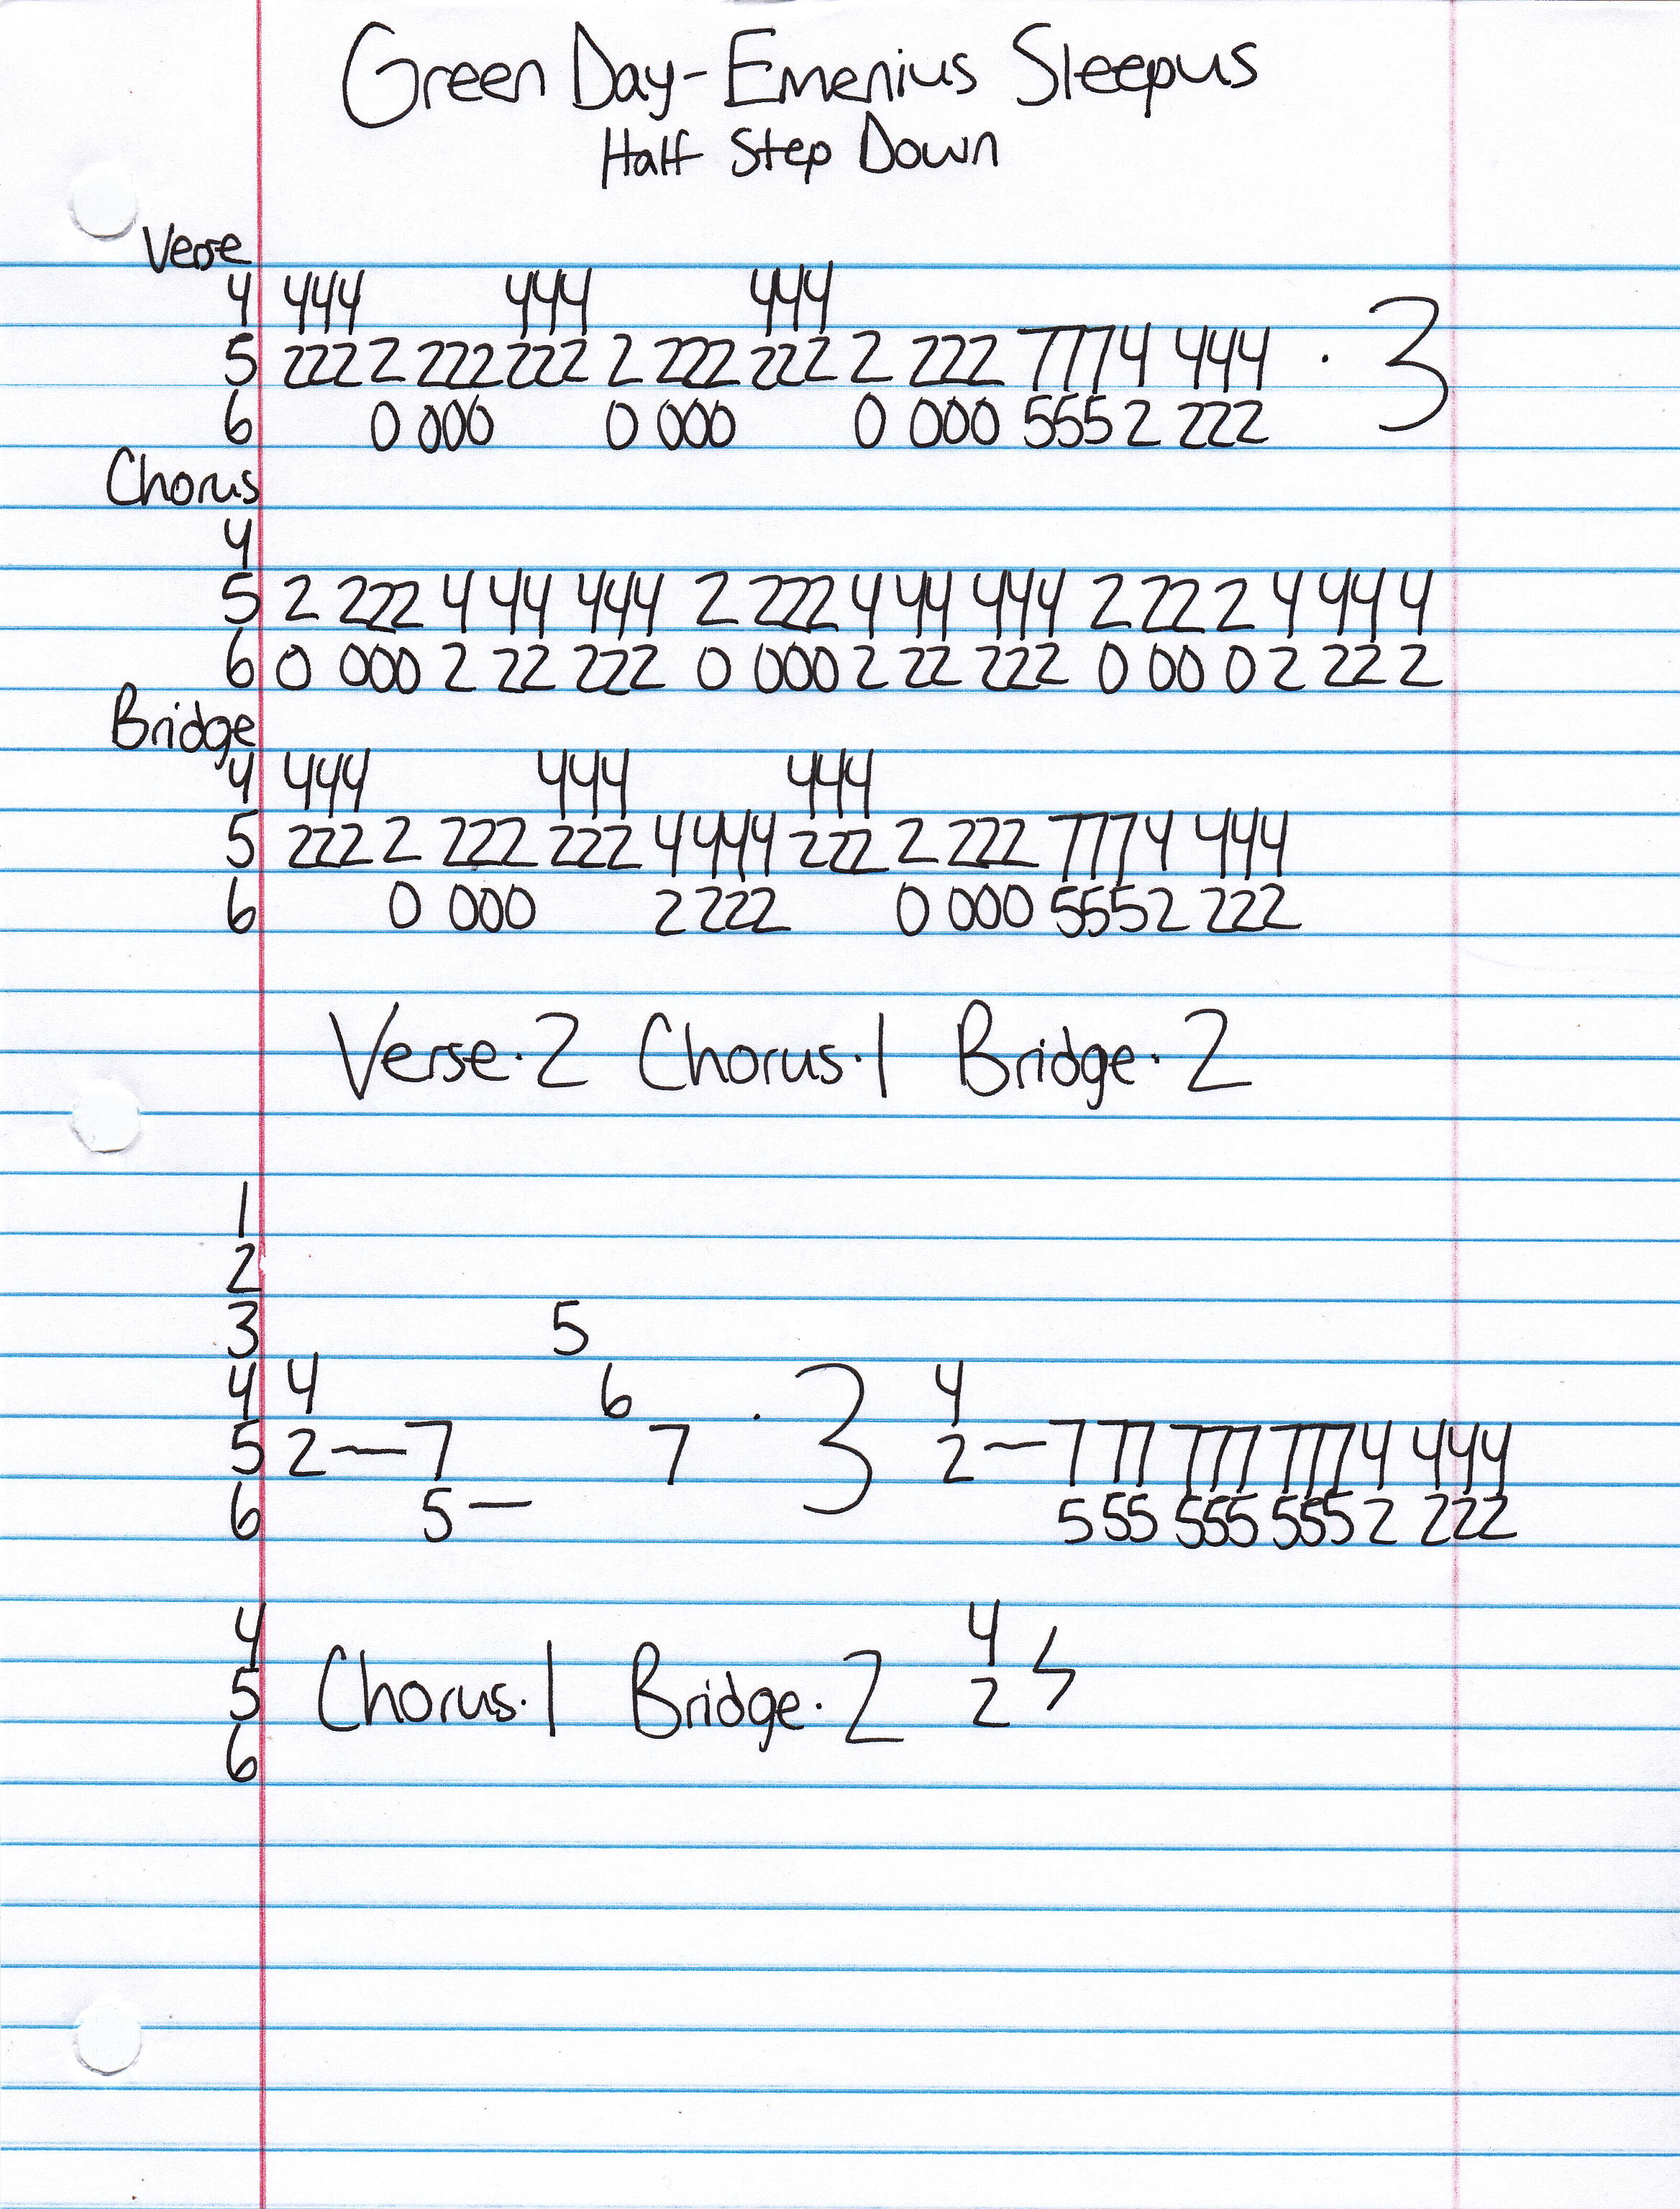 Green Day - Emenius Sleepus
Half Step Down
Verse
4 444 444 444
5 222 2 222 222 2 222 222 2 222 7774 444 · 3
6 0 000 0 000 0 000 5552 222
Chorus
4
5 2 222 4 44 444 2 222 4 44 444 2 22 2 4 44 4
6 0 000 2 22 222 0 000 2 22 222 0 00 0 2 22 2
Bridge
4 444 444 444
5 222 2 222 222 4 444 222 2 222 7774 444
6 0 000 2 222 0 000 5552 222
Verse · 2 Chorus · 1 Bridge · 2
1
2
3 5
4 4 6 4
5 2 — 7 7 · 3 2 — 7 77 777 7774 444
6 5 — 5 55 555 5552 222
4 4
5 Chorus · 1 Bridge · 2 2
6